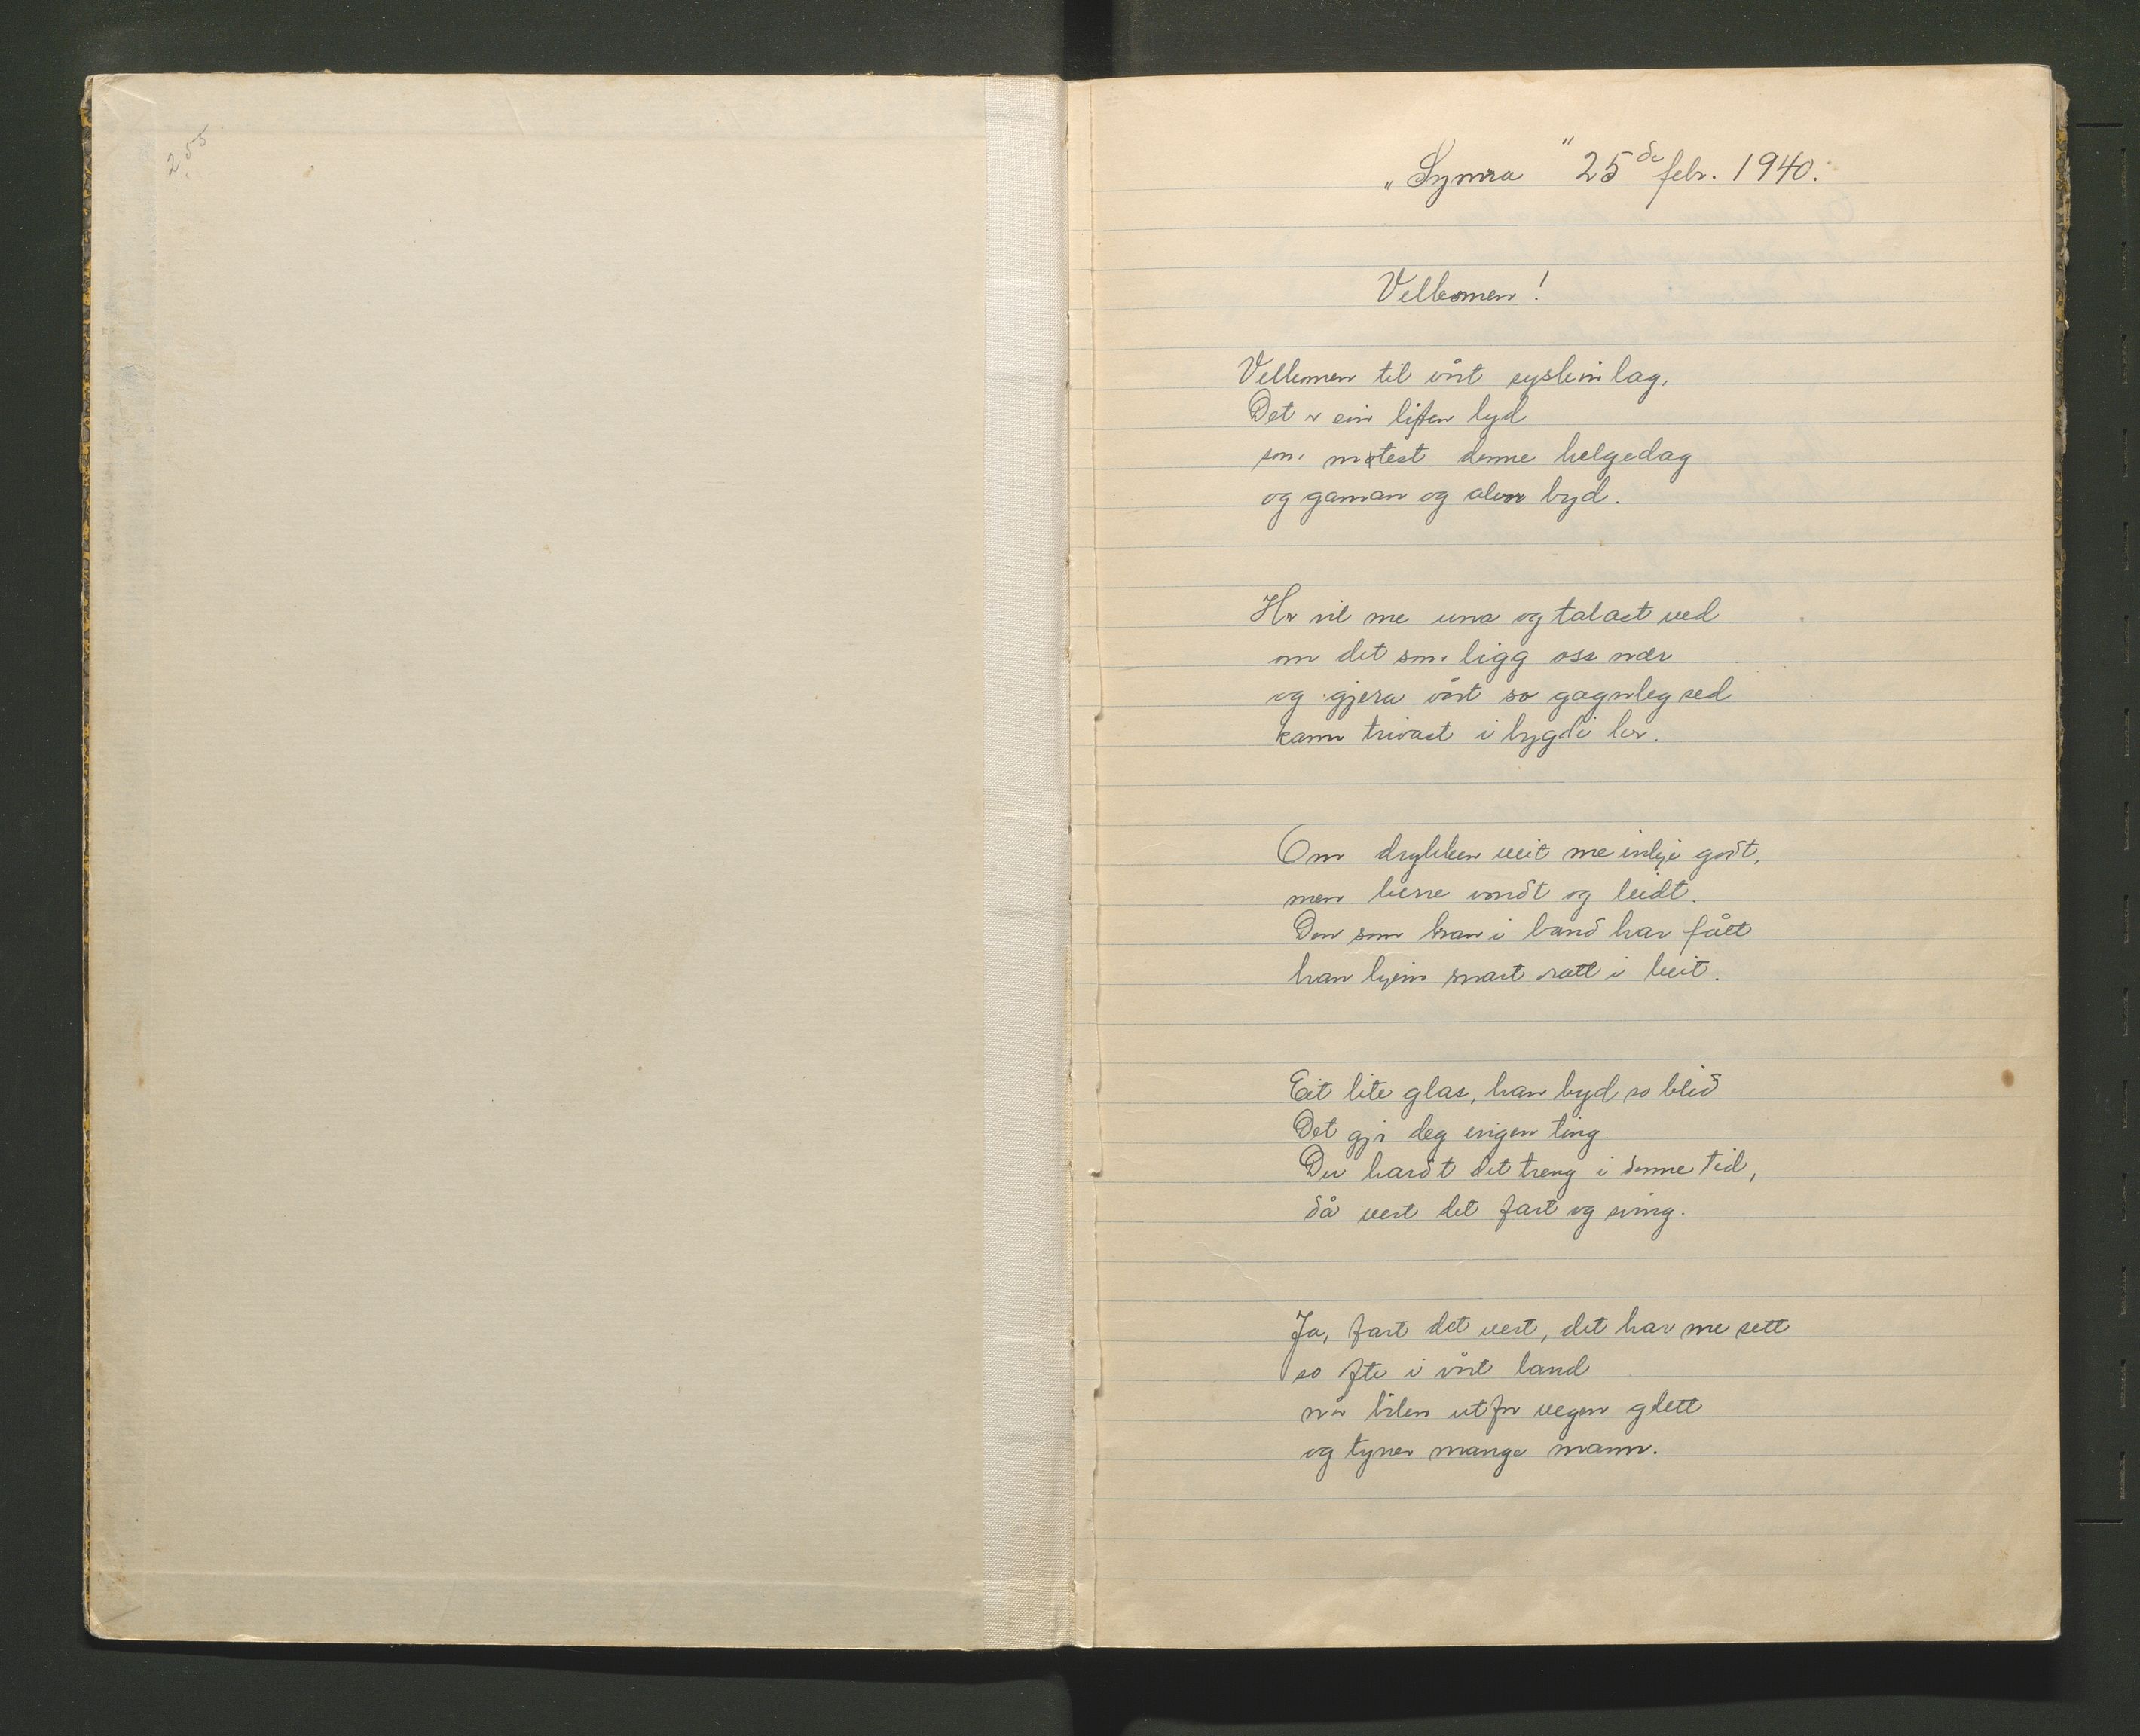 2,55
„Symra" 25de febr. 1940.
Velkomen!
Velkomen til vårt syskinlag.
Det er ein liten lyd
som møtest denne helgedag
og gaman og alvor byd.
Her vil me una og talast ved
om det som ligg oss nær
og gjera vårt so gagnleg sed
kann trivast i bygdi her.
Om drykken veit me inkje godt,
men berre vondt og leidt.
Den som han i band har fått
han kjem snart ratt i beit.
Eit lite glas, han byd so blid
Det gjer deg ingen ting.
Du hardt det treng i denne tid,
då vert det fart og sving.
Ja, fart det vert, det har me sett
so ofte i vårt land
når bilen utfor vegen glett
og tyner mange mann.